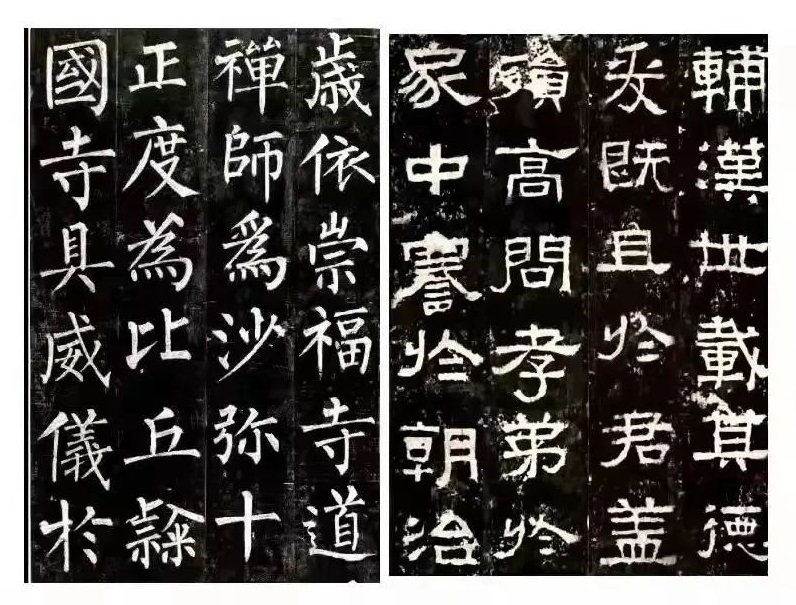 歳依崇福寺道
禪師爲沙弥十
正度為比丘隸
國寺具威儀於
輔漢世載其德
爰既且於君盖
殞高問孝弟於
家中謇於朝治